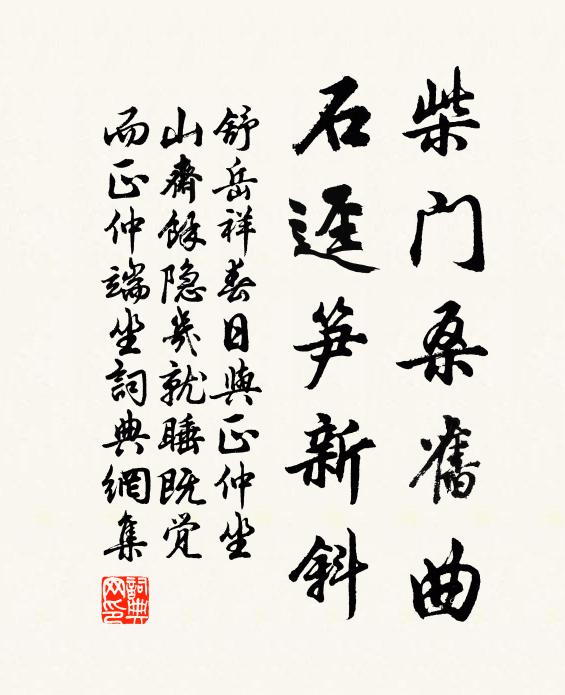 柴门桑舊曲
石迳笋新斜
舒岳祥春日與正仲坐
山齋餘隐几就睡既覚
而正仲端坐詞典網集
詞典
网印